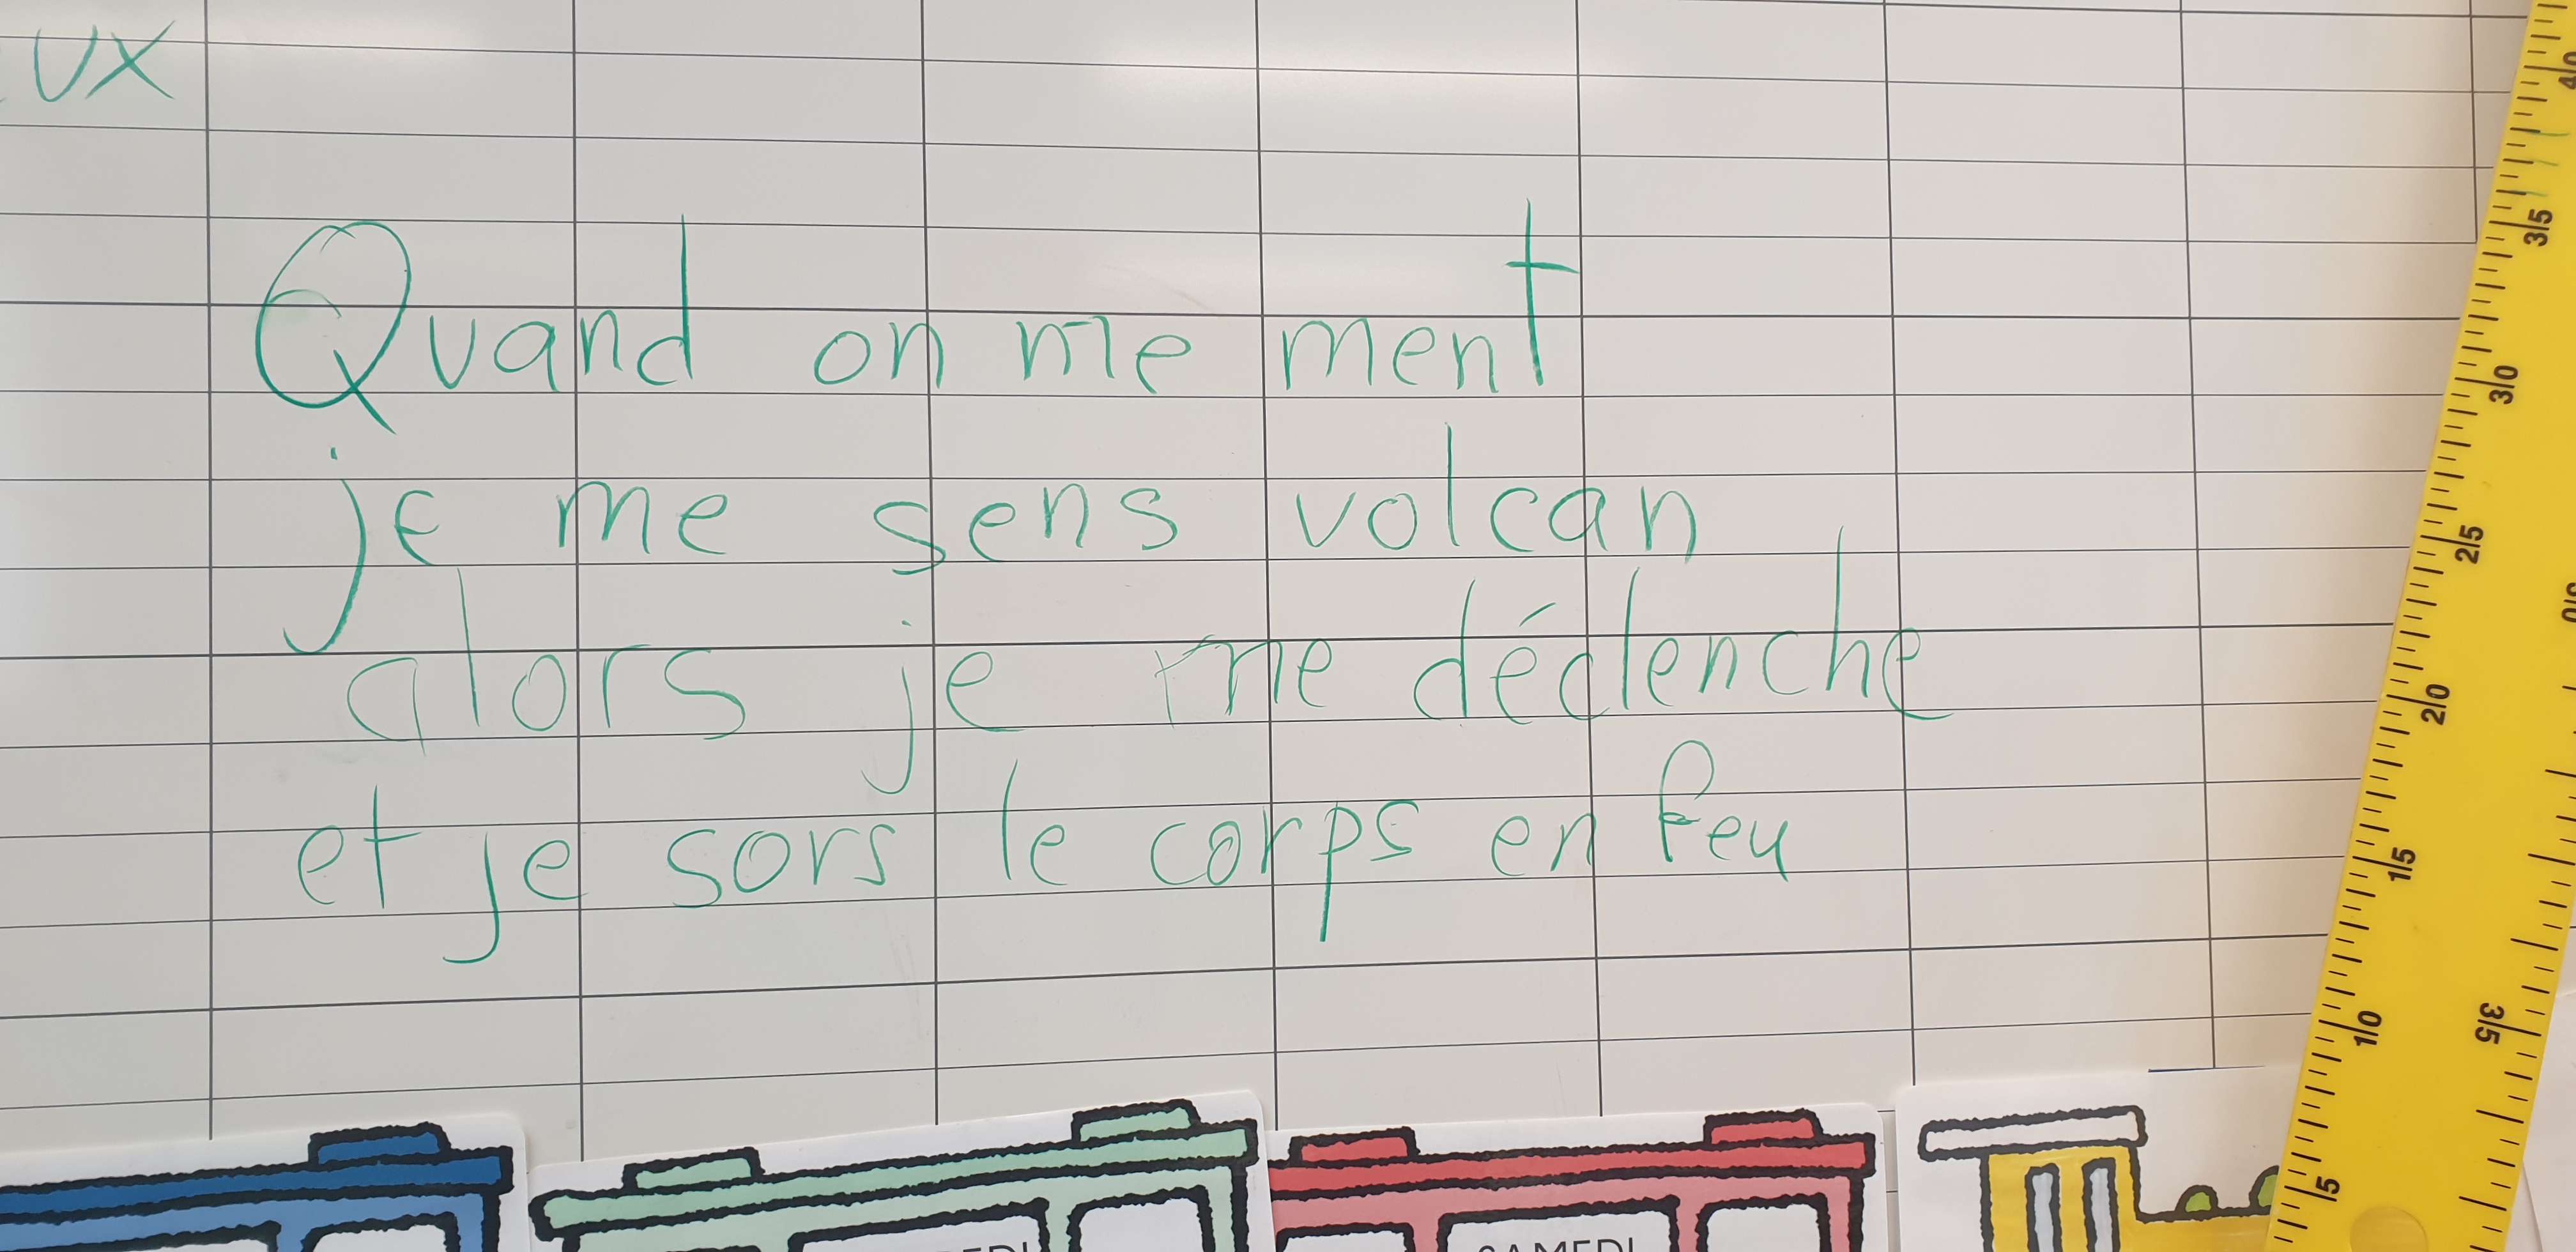 ux
Quand on me ment
je me sens volcan
alors je me déclenche
et je sors le corps en feu
40
35
30
25
20
15
10
5
35
SAMEDI